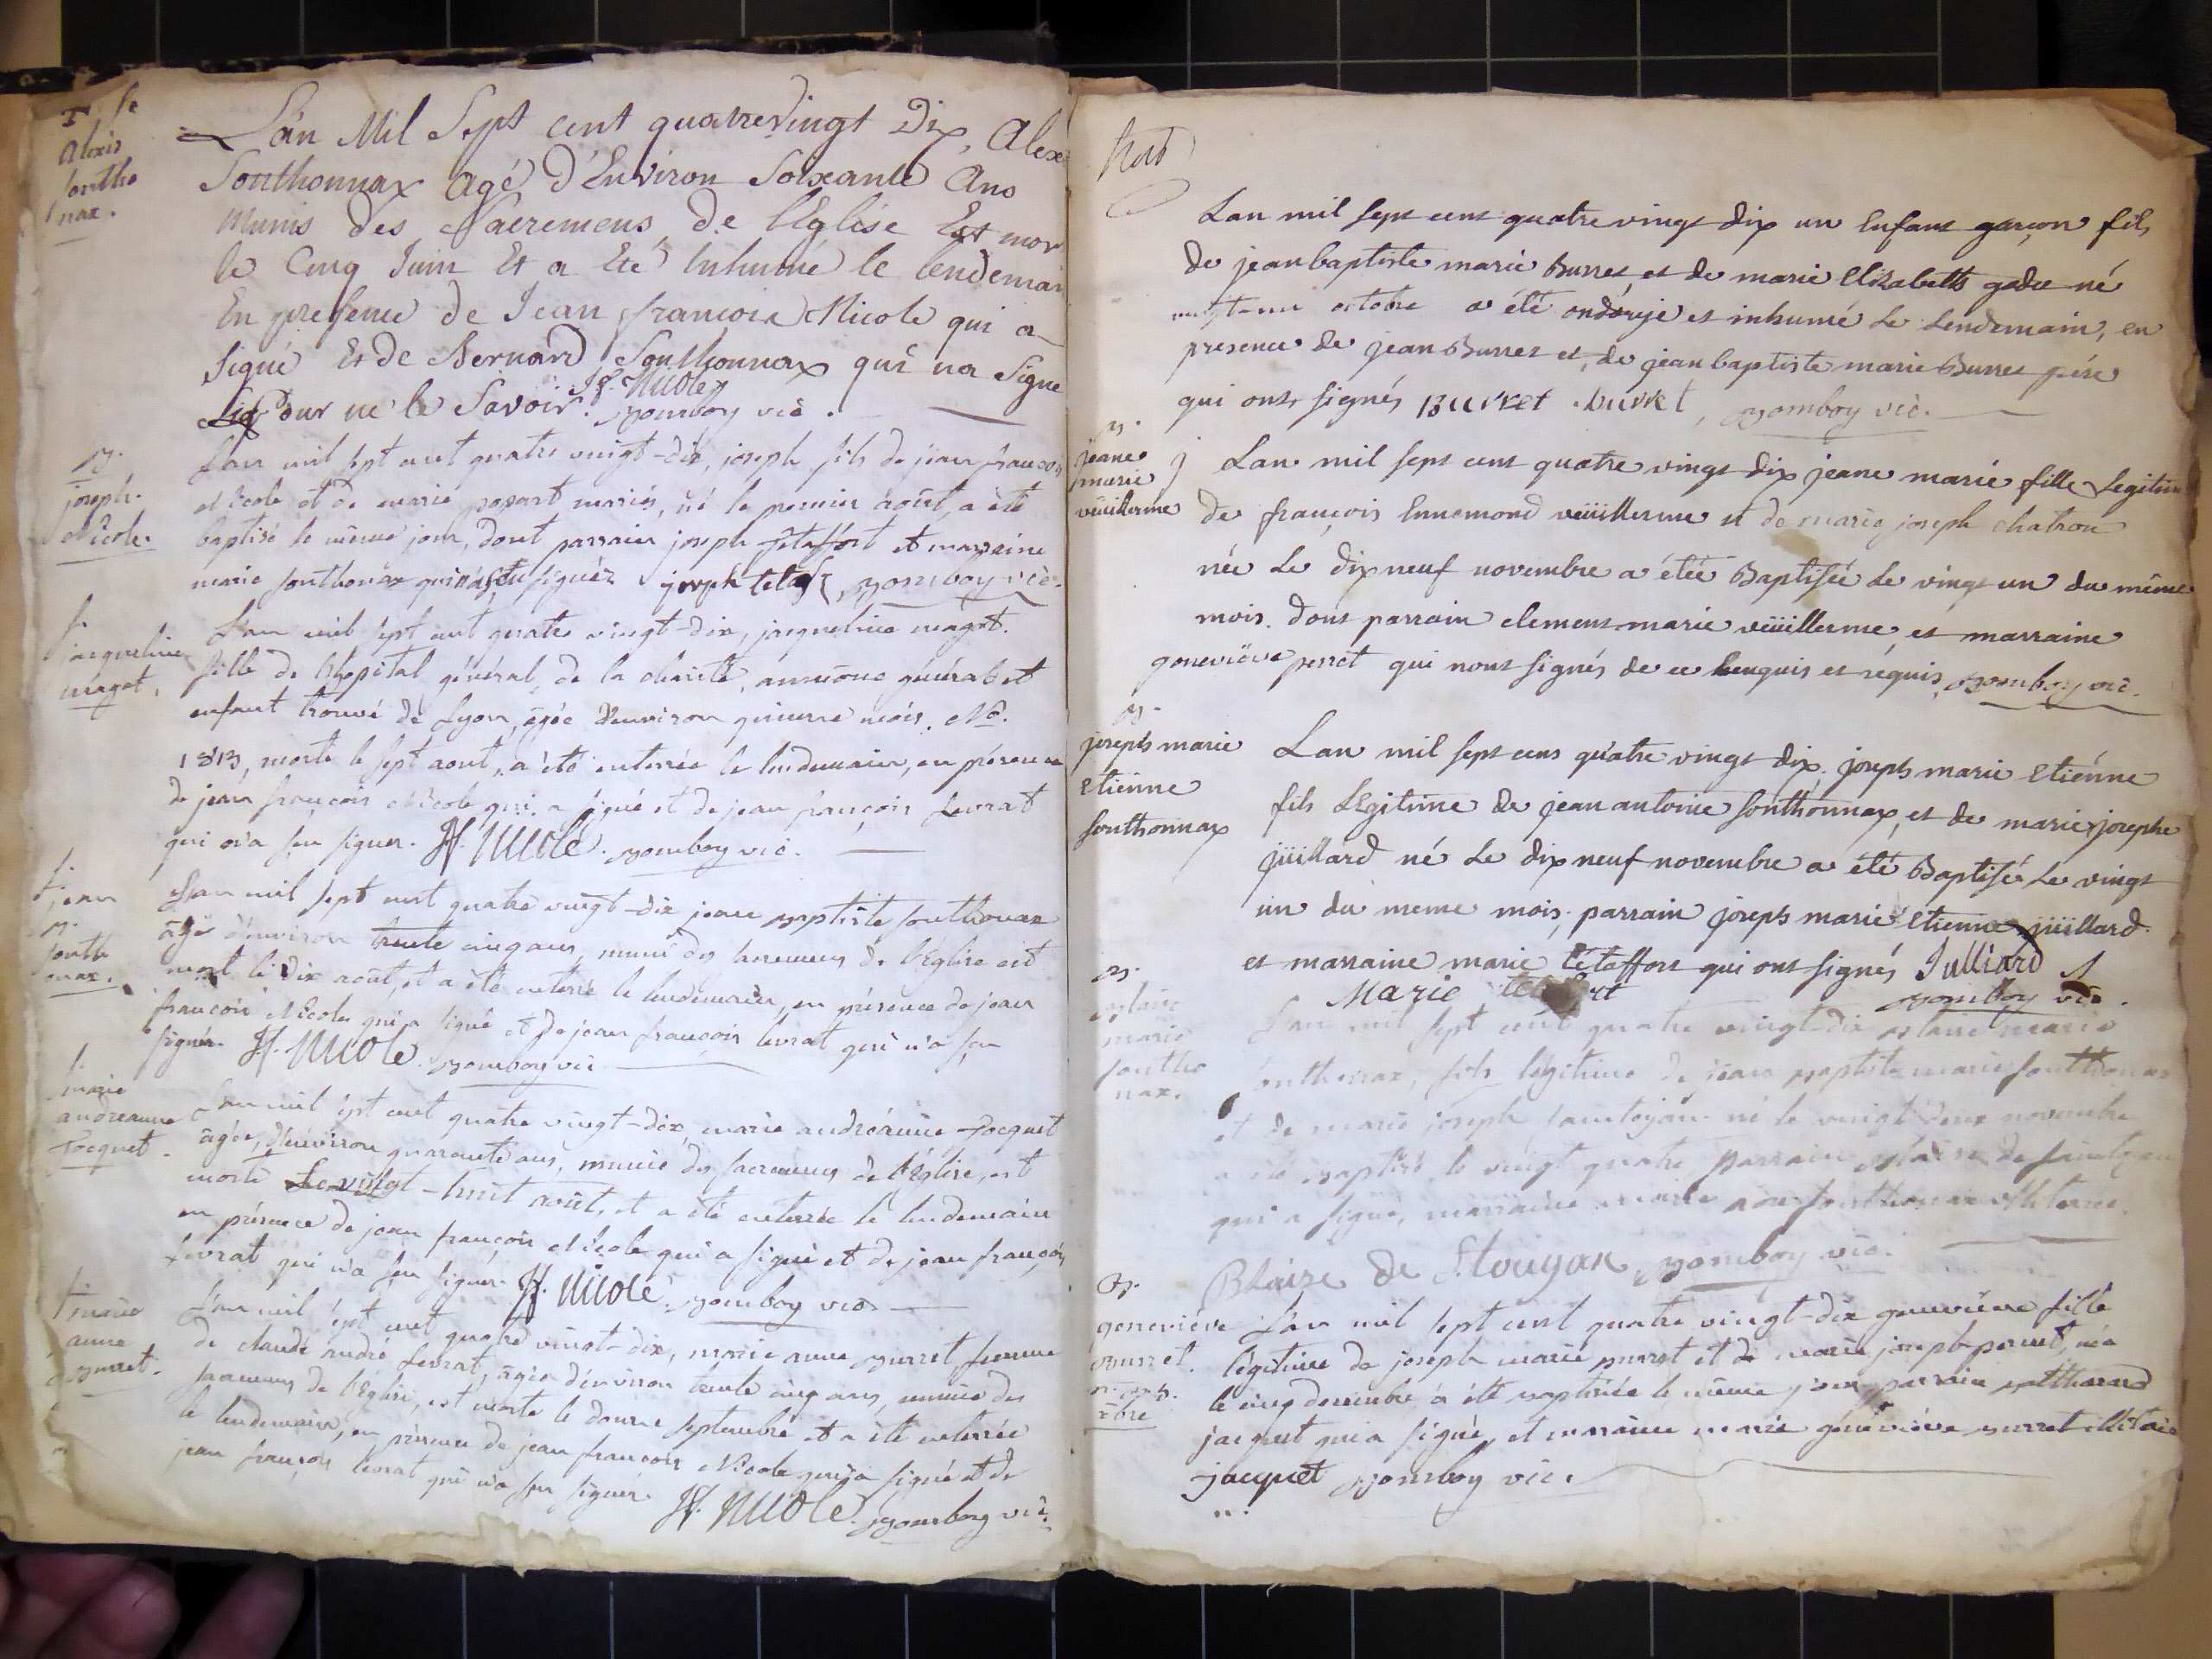 Lan Mil Sept cent quatrevingt Dix, Alex
Sonthonnax Agé d'Environ Soixante Ans
Munis des Sacremens de l'Eglise Est mor
le Cinq Juin Et a Eté Inhumé le lendemai
En presence de Jean francois Nicole qui a
Signé Et de Bernard Sonthonnax qui na Signé
pour ne le Savoir. J f. Nicole
Bomboy vic.
alexis
sontho
nax.
B.
joseph.
Nicole.
L'an mil sept cent quatre vingt-dix, joseph fils de jean francois
Nicole et de marie mariés, né le premier août, a été
baptisé le même jour, dont parrain joseph tétaffort et marraine
marie sonthonax signér Bomboy vic.
jacqueline
magot.
L'an mil sept cent quatre vingt-dix, jacqueline magot.
fille de l'hopital général, de la charité, aumône général et
enfant trouvé de Lyon, agée d'environ quinze mois. No.
1813, morte le sept aout, a été enterrée le lendemain, en présence
de jean françois Nicole qui a signé et de jean françois Levrat
qui n'a su signer. Jf. Nicole. Bomboy vic.
† jean
B.
sontho
nax.
L'an mil sept cent quatre vingt-dix jean Baptiste sonthonax
âgé d'environ trente cinq ans, muni des sacremens de l'Eglise est
mort le dix août, et a été enterré le lendemain, en présence de jean
francois Nicole qui a signé et de jean françois levrat qui n'a su
signér. Jf. Nicole. Bomboy vic
marie
andreanne
jocquet.
L'an mil sept cent quatre vingt-dix, marie andréanne jocquet
âgée, d'environ quarante ans, munie des sacremens de l'Eglise, est
morte Le vingt-huit août, et a été enterrée le lendemain
en présence de jean françois Nicole qui a signé et de jean françois
Levrat qui n'a su signér. Jf. Nicole. Bomboy vic
† marie
anne
Burret.
L'an mil sept cent quatre vingt-dix, marie anne Burret, femme
de claude andré Levrat, agée d'environ trente cinq ans, munie des
sacremens de l'Eglise, est morte le douze septembre et a été enterrée
le lendemain, en présence de jean francois Nicole qui a signé et de
jean françois levrat qui n'a su signér.
Jf. Nicole. Bomboy vic.
Lan mil sept cent quatre vingt dix un Enfant garçon fils
de jean baptiste marie Burret, et de marie Elizabeth né
octobre a été ondoyé et inhumé Le Lendemain, en
presence de jean Burret et, de jean baptiste marie Burret pere
qui ont signés Burret Burret, Bomboy vic.
B.
jeane
marie
vüillerme
Lan mil sept cent quatre vingt dix jeane marie fille Legitim
de françois Ennemond vüillerme et de marie joseph chatron
née Le dix neuf novembre a étéé Baptisée Le vingt un du même
mois. dont parrain clement marie vüillerme, et marraine
genevieve perret qui nont signés de ce Enquis et requis, Bomboy vic.
B.
joseph marie
Etienne
sonthonnax
Lan mil sept cent quatre vingt dix, joseph marie Etiénne
fils Légitime de jean antoine sonthonnax, et de marie josephe
jüillard né Le dix neuf novembre a été Baptisé Le vingt
un du meme mois, parrain joseph marie Etienne jüillard.
et marraine marie tétaffort qui ont signés Julliard
Marie
Bomboy vic.
B.
Blaise
marie
sontho
nax.
L'an mil sept cent quatre vingt-dix Blaise marie
sonthonax, fils légitime de jean Baptiste marie sonthonax
et de marie joseph né le vingt deux novembre
a été Baptisé, le vingt quatre parrain Blaise de
qui a signé, marraine marie sonthonax illiterée.
Blaize de Bomboy vic.
B.
geneviéve
Burret.
L'an mil sept cent quatre vingt-dix geneviéve fille
légitime de joseph marie Burret et de marie joseph perret, née
le cinq decembre a été Baptisée le même jour, parrain
jacquet qui a signé, et marraine marie généviéve Burret
jacquet Bomboy vic.